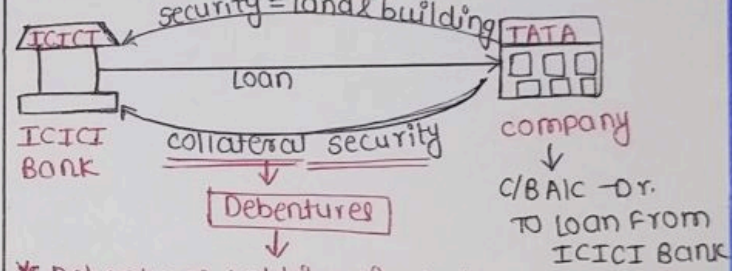 security = land & building
ICICI
TATA
Loan
ICICI
Bank
collateral security
company
C/B A/C - Dr.
To Loan From
ICICI Bank
Debentures